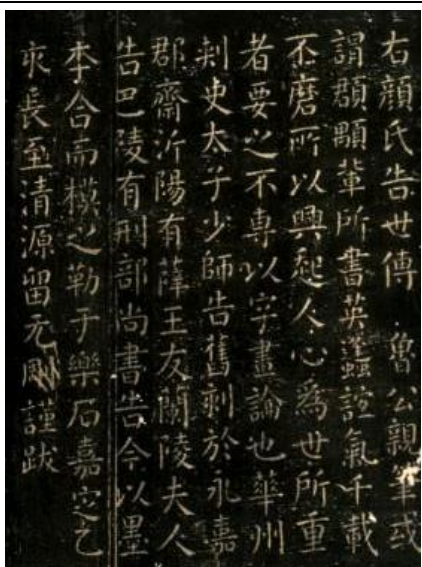 右顔氏告世傳　魯公親筆或
謂頵顒輩所書英邁誼氣千載
不磨所以興起人心爲世所重
者要之不專以字畫論也華州
刺史太子少師告舊刻於永嘉
郡齋沂陽有薛王友蘭陵夫人
告巴陵有刑部尚書告今以墨
本合而模之勒于樂石嘉定乙
亥長至清源留元剛謹跋